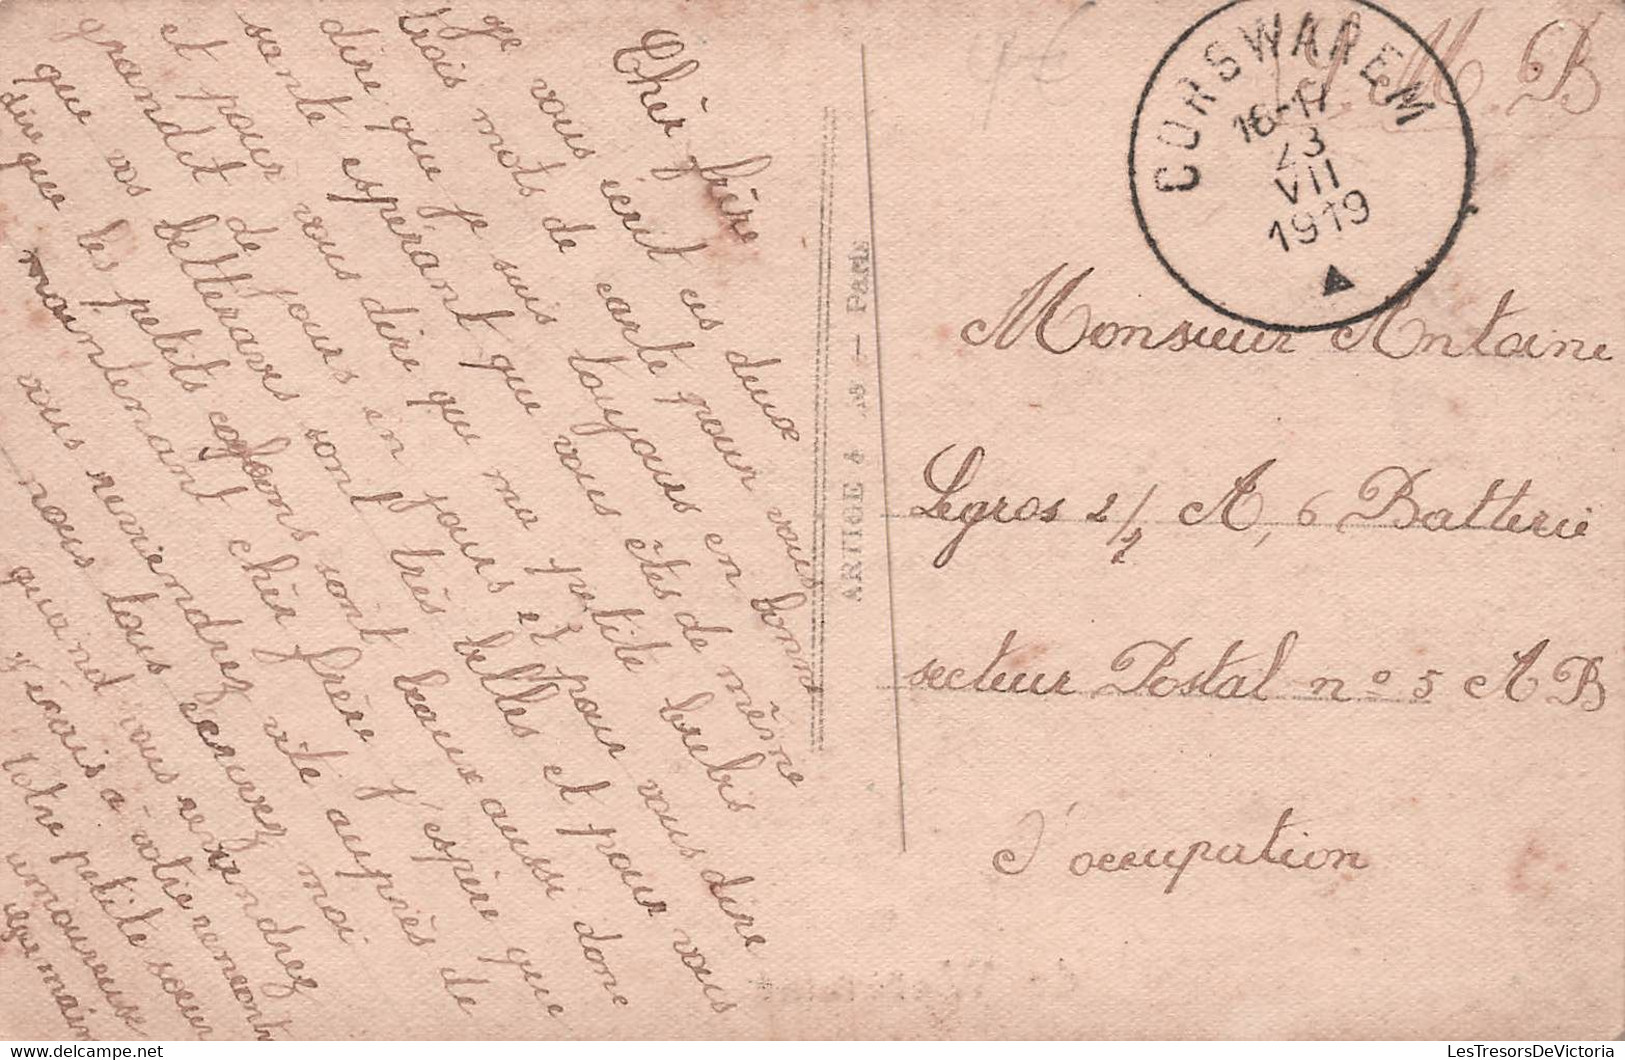 Chèr frère
je vous écrit ces deux
trois mots de carte pour vous
dire que je suis toujours en bonne
sante espérant que vous êtes de même
et pour vous dire que ma petite brebis
grandit de jours en jours et pour vous dire
que vos betteraves sont très belles et pour vous
dire que les petits cochons sont beaux aussi donc
maintenant chèr frère j'espère que
vous reviendrez vite auprès de
nous tous écrivez moi
quand vous reviendrez
j'irais à votre rencontre
votre petite sœur
amoureuse
Germain
ARTIGE & — Paris
S. M. B
CORSWAREM
16-17
23
VII
1919
Monsieur Antoine
Legros 2/2 A, 6 Batterie
secteur Postal n° 5 A B
d'occupation
LesTresorsDeVictoria